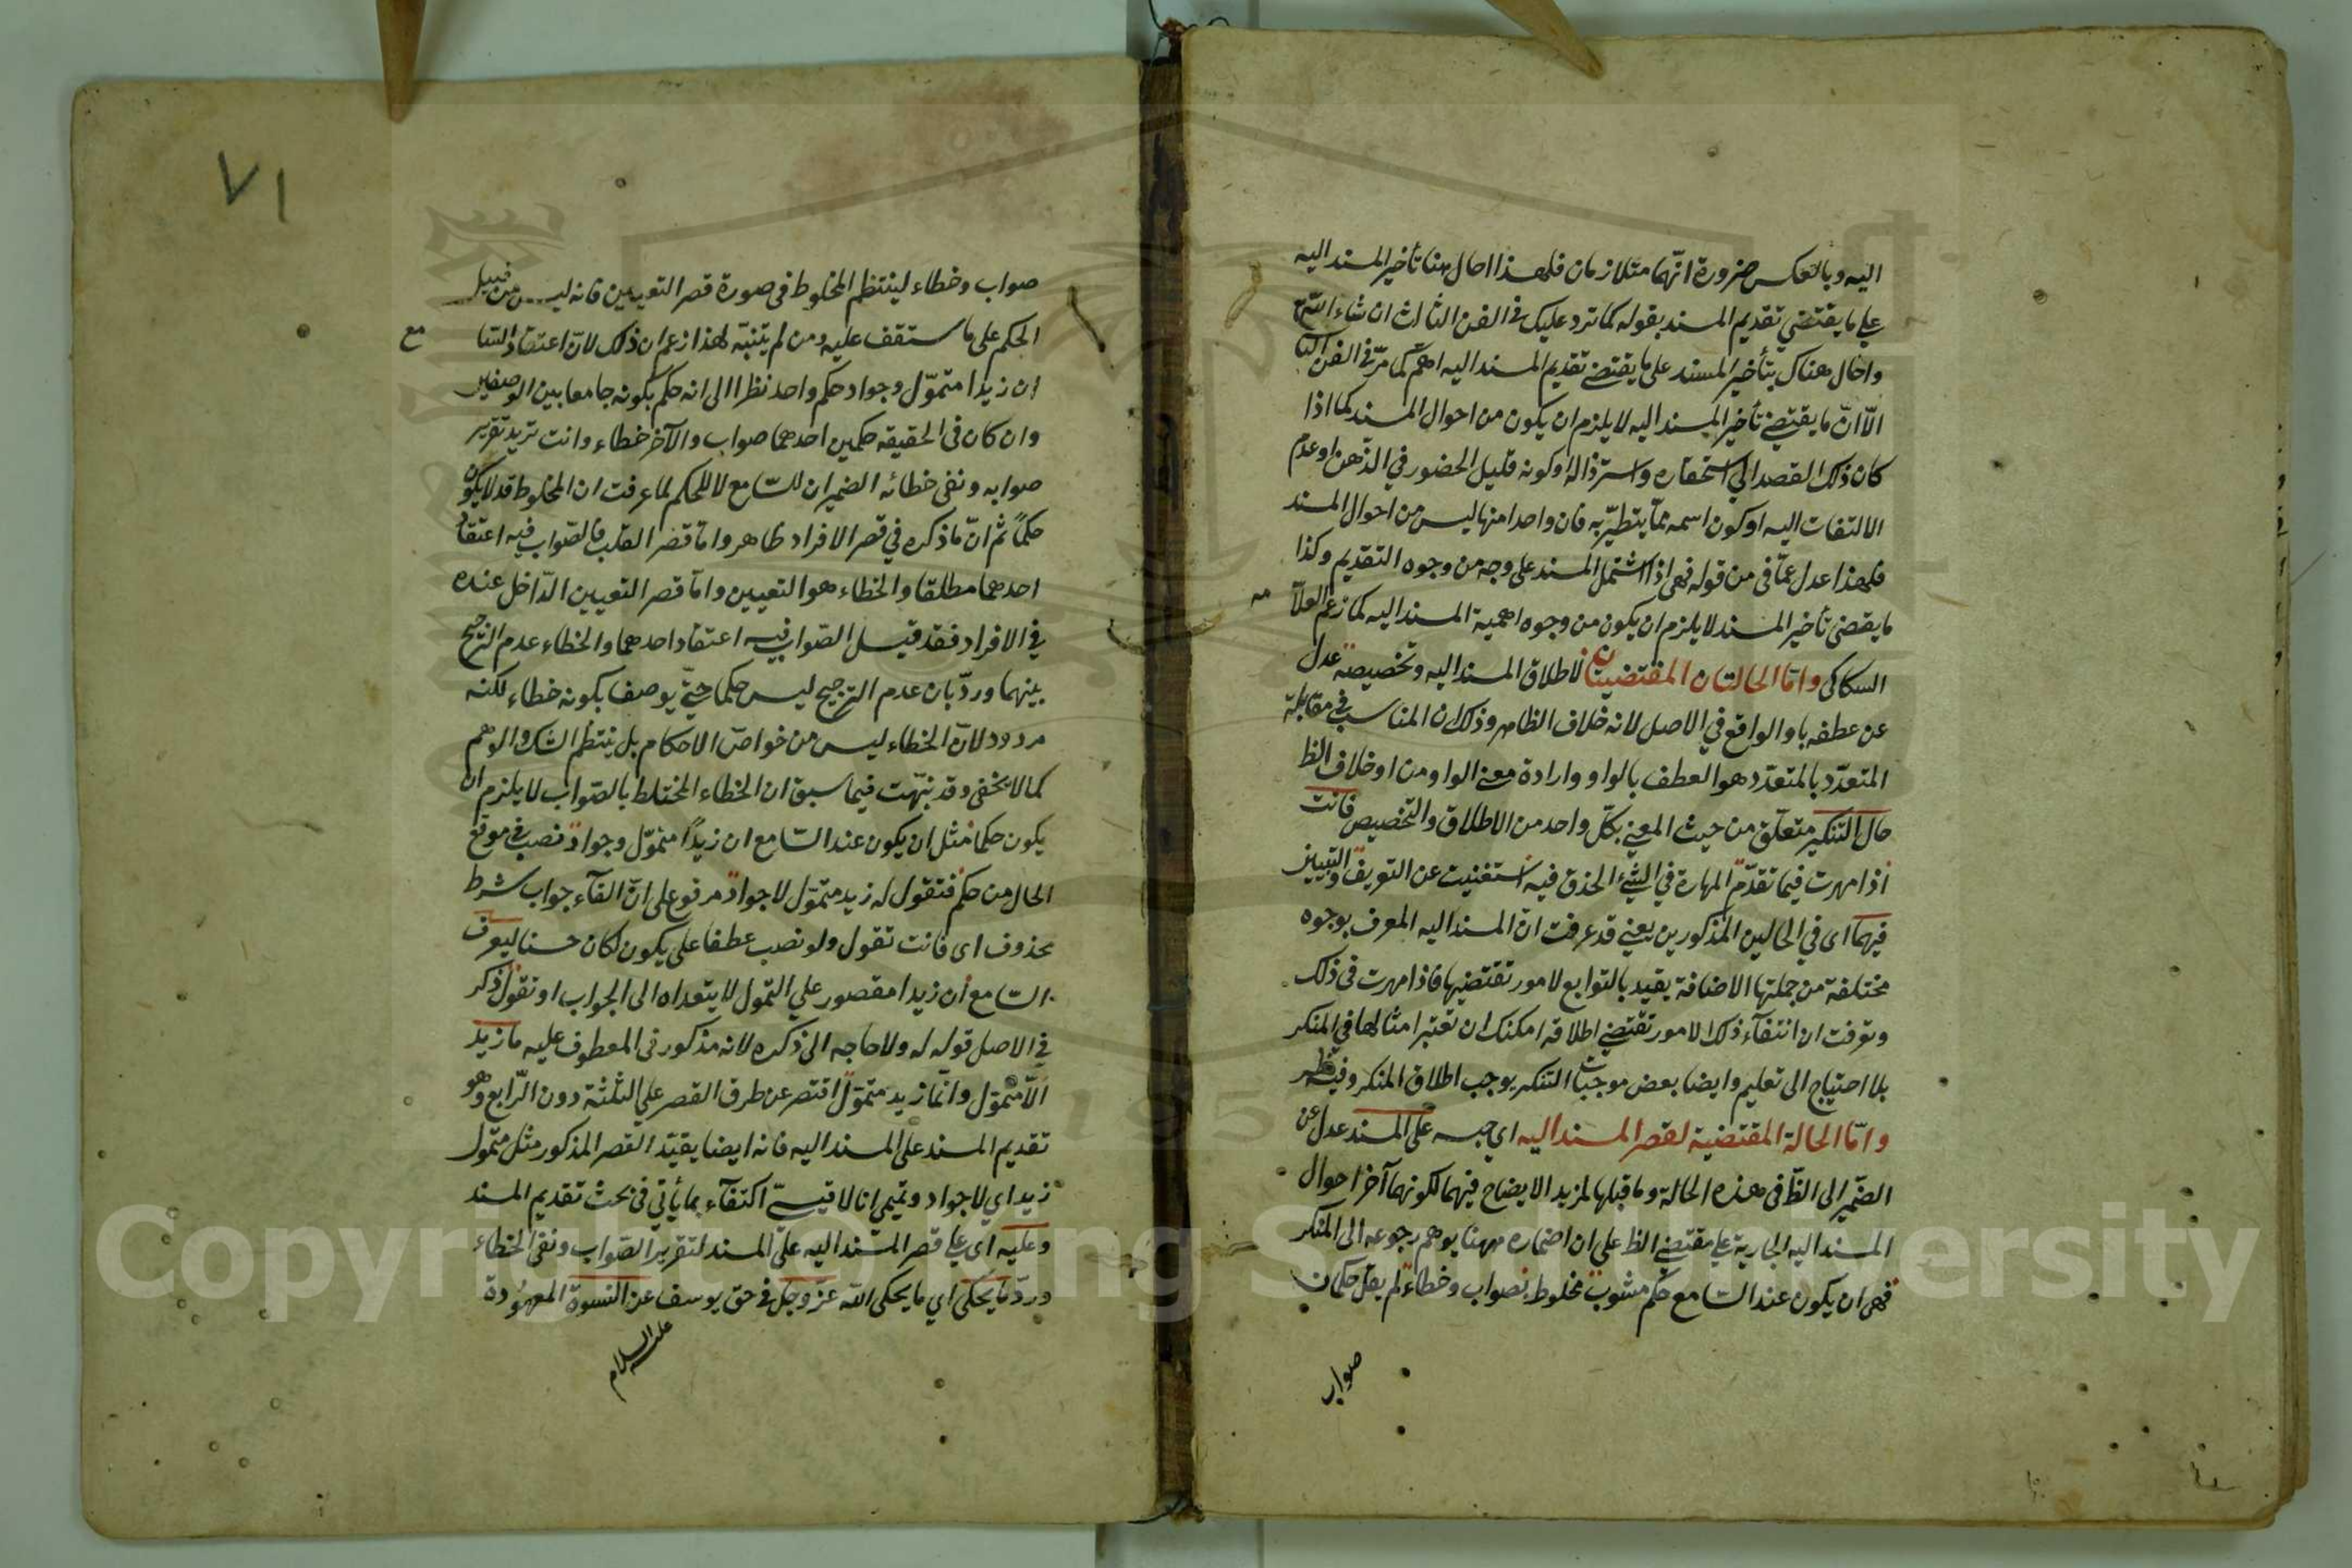 اليه وبالعكس ضرورة انّهما متلازمان فلهذا احال هنا تأخير المسند اليه
على ما يقتضي تقديم المسند بقوله كما ترد عليك في الفن الثالث ان شاء الله
واحال هناك بتأخير المسند على ما يقتضي تقديم المسند اليه اهمّ كما مرّ في الفن
الّا انّ ما يقتضي تأخير المسند اليه لا يلزم ان يكون من احوال المسند كما اذا
كان ذلك القصد الى استحقاره واسترذاله او كونه قليل الحضور في الذهن او عدم
الالتفات اليه او كون اسمه ممّا يتطيّر به فان واحدا منها ليس من احوال المسند
فلهذا عدل عمّا في من قوله فهي اذا اشتمل المسند على وجه من وجوه التقديم وكذا
ما يقضى تأخير المسند لا يلزم ان يكون من وجوه اهمية المسند اليه كما زعم العلّا
مه
السكاكى وامّا الحالتان المقتضيتان لاطلاق المسند اليه وتخصيصه عدل
عن عطفه باو الواقع في الاصل لانه خلاف الظاهر وذلك ان المناسب في مقابلة
المتعدّد بالمتعدّد هو العطف بالواو وارادة معنى الواو من او خلاف الظ
حال التنكير متعلّق من حيث المعنى بكلّ واحد من الاطلاق والتخصيص فانت
اذا مهرت فيما تقدّم المهارة في الشئ الحذق فيه استغنيت عن التعريف والتبيين
فيهما اى في الحالين المذكورين يعني قد عرفت انّ المسند اليه المعرف بوجوه
مختلفة من جملتها الاضافة يقيد بالتوابع لامور تقتضيها فاذا مهرت فى ذلك
وعرفت ان انتفآء ذلك الامور تقتضي اطلاقه امكنك ان تعتبر امثالها في المنكر
بلا احتياج الى تعليم وايضا بعض موجبات التنكير يوجب اطلاق المنكر وفيه نظر
وامّا الحالة المقتضية لقصر المسند اليه اى حبسه على المسند عدل عن
الضّمير الى الظّ فى هذه الحالة وما قبلها لمزيد الايضاح فيهما لكونهما آخر احوال
المسند اليه الجارية على مقتضى الظ على ان اضماره ههنا يوهم رجوعه الى المنكر
فهى ان يكون عند السّامع حكم مشوب مخلوط بصواب وخطاء لم يقل حكمان
صواب
٧١
صواب وخطاء لينتظم المخلوط فى صورة قصر التعيين فانه ليس من قبيل
الحكم على ما ستقف عليه ومن لم يتنبّه لهذا زعم ان ذلك لانّ اعتقاد السّا
مع
ان زيدا متموّل وجواد حكم واحد نظرا الى انه حكم بكونه جامعا بين الوصفين
وان كان فى الحقيقه حكمين احدهما صواب والآخر خطاء وانت تريد تقرير
صوابه ونفى خطائه الضميران للسّامع لا للحكم لما عرفت ان المخلوط قد لا يكون
حكماً ثم انّ ما ذكره في قصر الافراد ظاهر وامّا قصر القلب فالصّواب فيه اعتقاد
احدهما مطلقا والخطاء هو التعيين وامّا قصر التعيين الدّاخل عنده
في الافراد فقد قيل الصّواب فيه اعتقاد احدهما والخطاء عدم الترجيح
بينهما وردّ بان عدم الترجيح ليس حكما حتّى يوصف بكونه خطاء لكنه
مردود لانّ الخطاء ليس من خواصّ الاحكام بل ينتظم الشك والوهم
كما لا يخفى وقد نبّهت فيما سبق ان الخطاء المختلط بالصّواب لا يلزم ان
يكون حكما مثل ان يكون عند السّامع ان زيداً متموّل وجواد نصب في موقع
الحال من حكم فتقول له زيد متموّل لا جواد مرفوع على انّ الفآء جواب شرط
محذوف اى فانت تقول ولو نصب عطفا على يكون لكان حسنا ليعرف
السّامع ان زيدا مقصور على التموّل لا يتعداه الى الجواب او تقول ذكر
في الاصل قوله له ولا حاجه الى ذكره لانه مذكور فى المعطوف عليه ما زيد
الّا متموّل وانّما زيد متموّل اقتصر عن طرق القصر على الثلثة دون الرّابع وهو
تقديم المسند على المسند اليه فانه ايضا يقيّد القصر المذكور مثل متموّل
زيد اي لا جواد وتميمى انا لا قيسىّ اكتفآء بما يأتي فى بحث تقديم المسند
وعليه اى على قصر المسند اليه على المسند لتقرير الصّواب ونفى الخطاء
وردّ ما يحكى اي ما يحكى الله عزّ وجلّ في حق يوسف عن النسوة المعهودة
عليه السلام